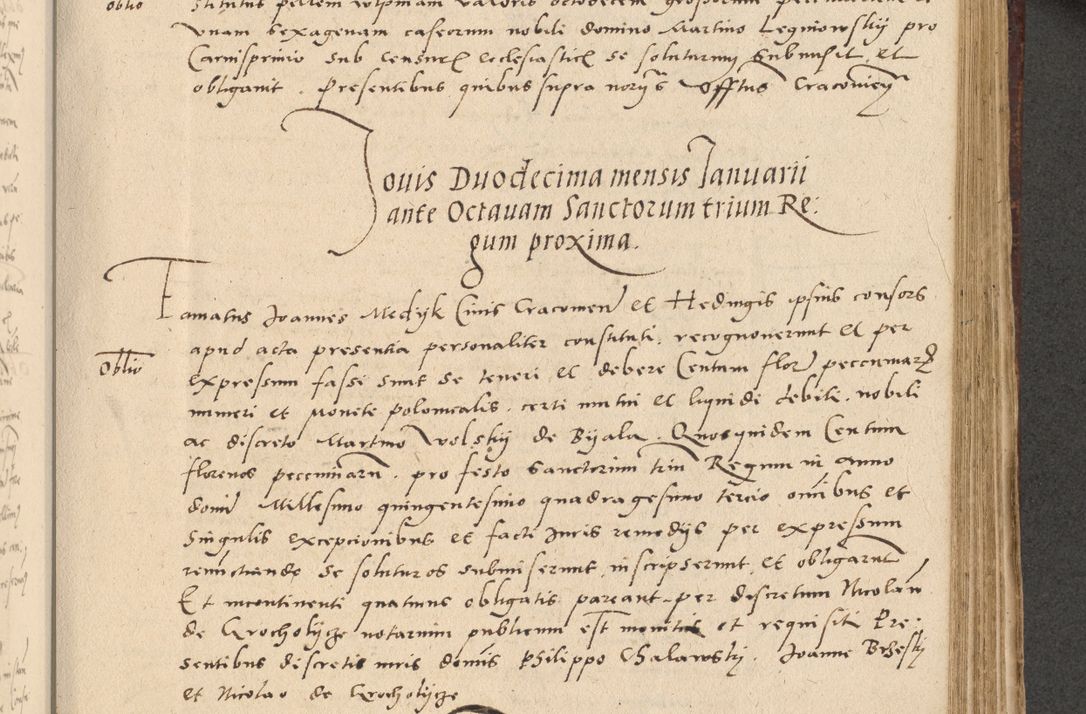 oblio
stitutus pellem vulpinam valoris octodecem grossorum
vnam sexagenam caseorum nobili domino Martino Legniowskij pro
Carnisprivio sub censuris ecclesiasticis se soluturum submisit et
obligavit. Presentibus quibus supra Offtus Cracovien
Iouis Duodecima mensis Ianuarii
ante Octauam Sanctorum trium Re:
gum proxima.
Famatus Joannes Medijk Civis Cracovien et Hedvigis ipsius consors
apud acta presentia personaliter constituti, recognoverunt et per
Oblio
expressum fassi sunt se teneri et debere Centum flor peccuniar
numeri et monete polonicalis, certi mutui et liquide debiti, nobili
ac discreto Martino Wolskij de Bijala. Quosquidem Centum
florenos pecuniarn, pro festo Sanctorum trium Regum in anno
domi Millesimo quingentesimo quadragesimo tercio omibus et
singulis excepcionibus et facti Juris remedijs per expressum
renunctiando se soluturos submiserunt, inscripserunt, et obligarunt
Et incontinenti quatenus obligatis pareant, per discretum Nicolaum
de Crocholijcze notarium publicum est moniti et requisiti Pre:
sentibus discretis viris domis Philippo Chalawskij, Joanne Brzeskij
et Nicolao de Crocholijcze